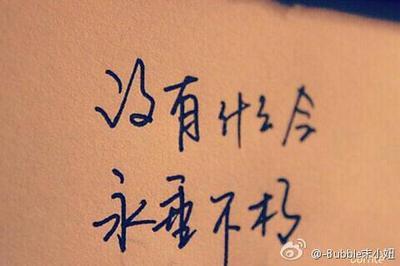 没有什么会
永垂不朽
@-Bubble末小妞